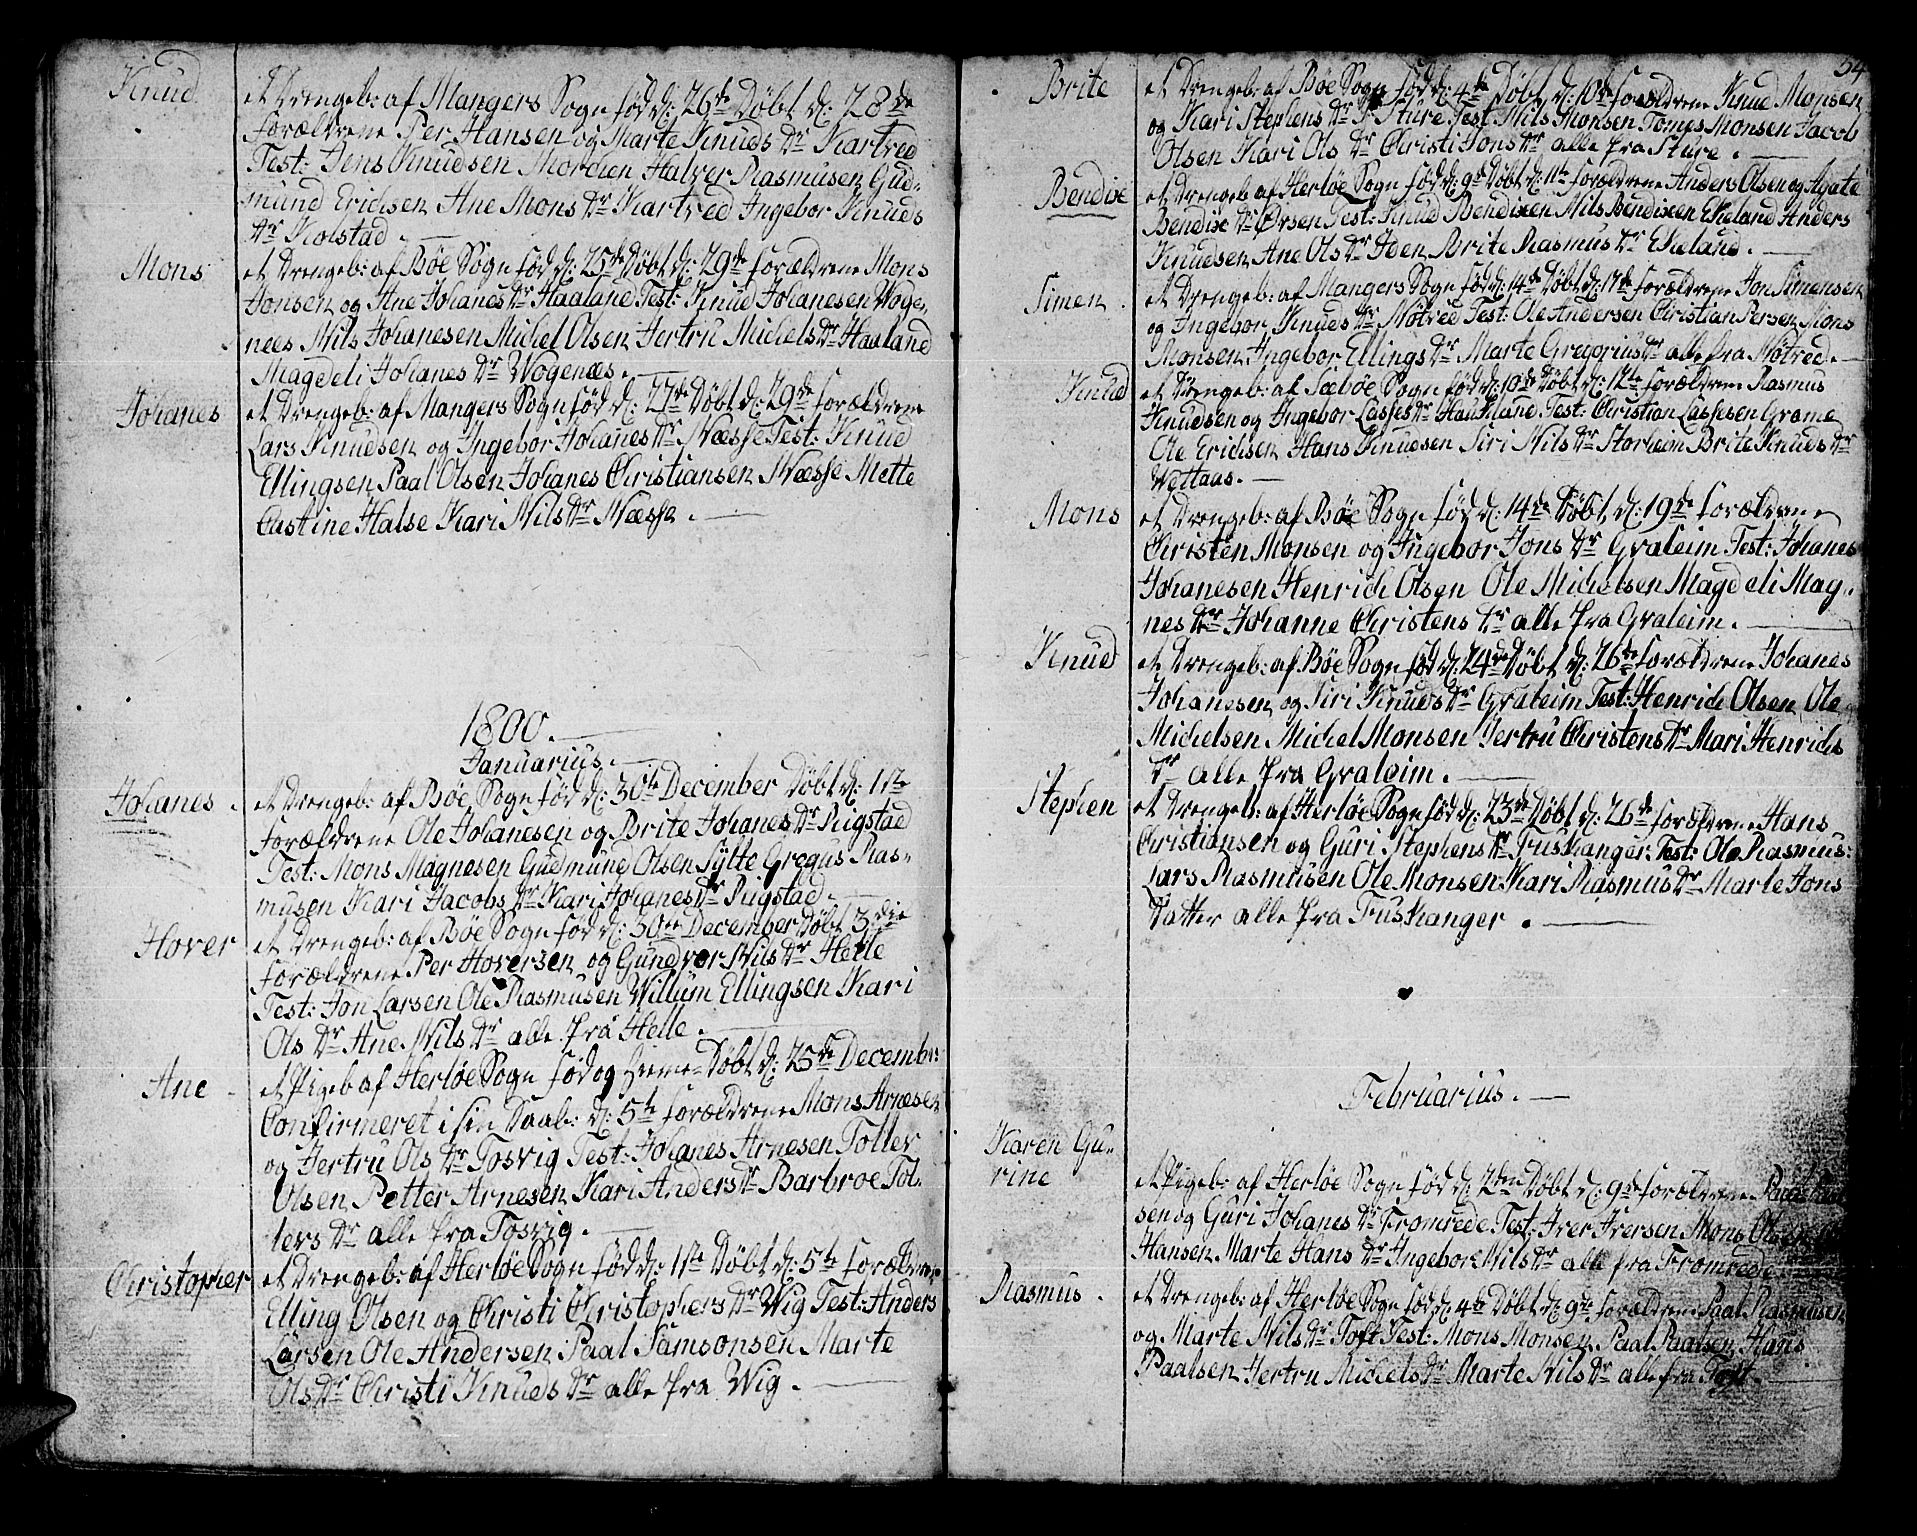 Knud
et Drengeb: af Mangers Sogn fød d: 26de Døbt d: 28de
forældrene Per Hansen og Marte Knuds Dr Kartved
Test: Jens Knudsen Mordien Halver Rasmusen Gud-
mund Erichsen Ane Mons Dr Kartved Ingebor Knuds
Dr Kolstad. —
Mons
et Drengeb: af Bøe Sogn fød d: 25de Døbt d: 29de forældrene Mons
Jonsen og Ane Johanes Dr Haaland Test: Knud Johanesen Woge-
nees Nils Johanesen Michel Olsen Jertru Michels Dr Haaland
Magdeli Johanes Dr Wogenæs. —
Johanes
et Drengeb: af Mangers Sogn fød d: 27de Døbt d: 29de forældrene
Lars Knudsen og Ingebor Johanes Dr Næsse Test: Knud
Ellingsen Paal Olsen Johanes Christiansen Næsse Mette
Castine Halse Kari Nils Dr Næsse. —
1800. —
Januarius. —
Johanes.
et Drengeb: af Bøe Sogn fød d: 30te December Døbt d: 1ste
forældrene Ole Johanesen og Brite Johanes Dr Rigstad
Test: Mons Magnesen Gudmund Olsen Sylte Gregus Ras-
musen Kari Jacobs Dr Kari Johanes Dr Rigstad. —
Hover
et Drengeb: af Bøe Sogn fød d: 30te December Døbt 3die
forældrene Per Hoversen og Gundvor Nils Dr Helle
Test: Jon Larsen Ole Rasmusen Willum Ellingsen Kari
Ols Dr Ane Nils Dr alle fra Helle. —
Ane
et Pigeb af Herløe Sogn fød og hieme-Døbt d: 25de Decembr:
Confirmeret i sin Daab: d: 5te forældrene Mons Arnesen
og Jertru Ols Dr Tosvig Test: Johanes Arnesen Toller
Olsen Petter Arnesen Kari Anders Dr Barbroe Tol-
lers Dr alle fra Tosvig. —
Christopher
et Drengeb: af Herløe Sogn fød d: 1ste Døbt d: 5te forældrene
Elling Olsen og Christi Christophers Dr Wig Test: Anders
Larsen Ole Andersen Paal Samsonsen Marte
Ols Dr Christi Knuds Dr alle fra Wig. —
54
Brite
et Drengeb: af Bøe Sogn fød d: 4de Døbt d: 10de forældrene Knud Monsen
og Kari Stephens Dr Sture Test Nils Monsen Tomes Monsen Jacob
Olsen Kari Ols Dr Christi Jons Dr alle fra Sture. —
Bendixe
et Drengeb af Herløe Sogn fød d: 9de Døbt d: 11te forældrene Anders Olsen og Agate
Bendixe Dr Ørsen Test: Knud Bendixen Nils Bendixen Ekeland Anders
Knudsen Ane Ols Dr Iden Brite Rasmus Dr Ekeland. —
Simen.
et Drengeb: af Mangers Sogn fød d: 14de Døbt d: 17de forældrene Jon Simensen
og Ingebor Knuds Dr Møtved Test: Ole Andersen Christian Persen Mons
Monsen Ingebor Ellings Dr Marte Gregorius Dr alle fra Møtved. —
Knud
et Drengeb: af Sæbøe Sogn fød d: 10de Døbt d: 12te forældrene Rasmus
Knudsen og Ingebor Lasses Dr Haukland Test: Christian Lassesen Grame
Ole Erichsen Hans Knudsen Siri Nils Dr Storheim Brite Knuds Dr
Wettaas. —
Mons
et Drengeb: af Bøe Sogn fød d: 14de Døbt d: 19de forældrene
Christen Monsen og Ingebor Jons Dr Graleim Test: Johanes
Johanesen Henrich Olsen Ole Michelsen Magdeli Mag-
nes Dr Johanne Christens Dr alle fra Graleim. —
Knud
et Drengeb: af Bøe Sogn fød d: 24de Døbt d: 26de forældrene Johanes
Johanesen og Siri Knuds Dr Graleim Test: Henrich Olsen Ole
Michelsen Michel Monsen Jertru Christens Dr Mari Henrichs
Dr alle fra Graleim. —
Stephen
et Drengeb: af Herløe Sogn fød d: 23de Døbt d: 26de forældrene Hans
Christiansen og Guri Stephens Dr Fuskanger: Test: Ole Rasmus:
Lars Rasmusen Ole Monsen Kari Rasmus Dr Marte Jons
Datter alle fra Fuskanger. —
Februarius. —
Karen Gu-
rine
et Pigeb: af Herløe Sogn fød d: 2den Døbt d: 9de forældrene Paal
sen og Guri Johanes Dr Fromrede Test: Iver Iversen Mons Olsen
Hansen Marte Hans Dr Ingebor Nils Dr alle fra Fromrede
Rasmus.
et Drengeb: af Herløe Sogn fød d: 4de Døbt d: 9de forældrene Paal Rasmusen
og Marte Nils Dr Toft Test: Mons Monsen Paal Paalsen Hans
Paalsen Jertru Michels Dr Marte Nils Dr alle fra Toft. —